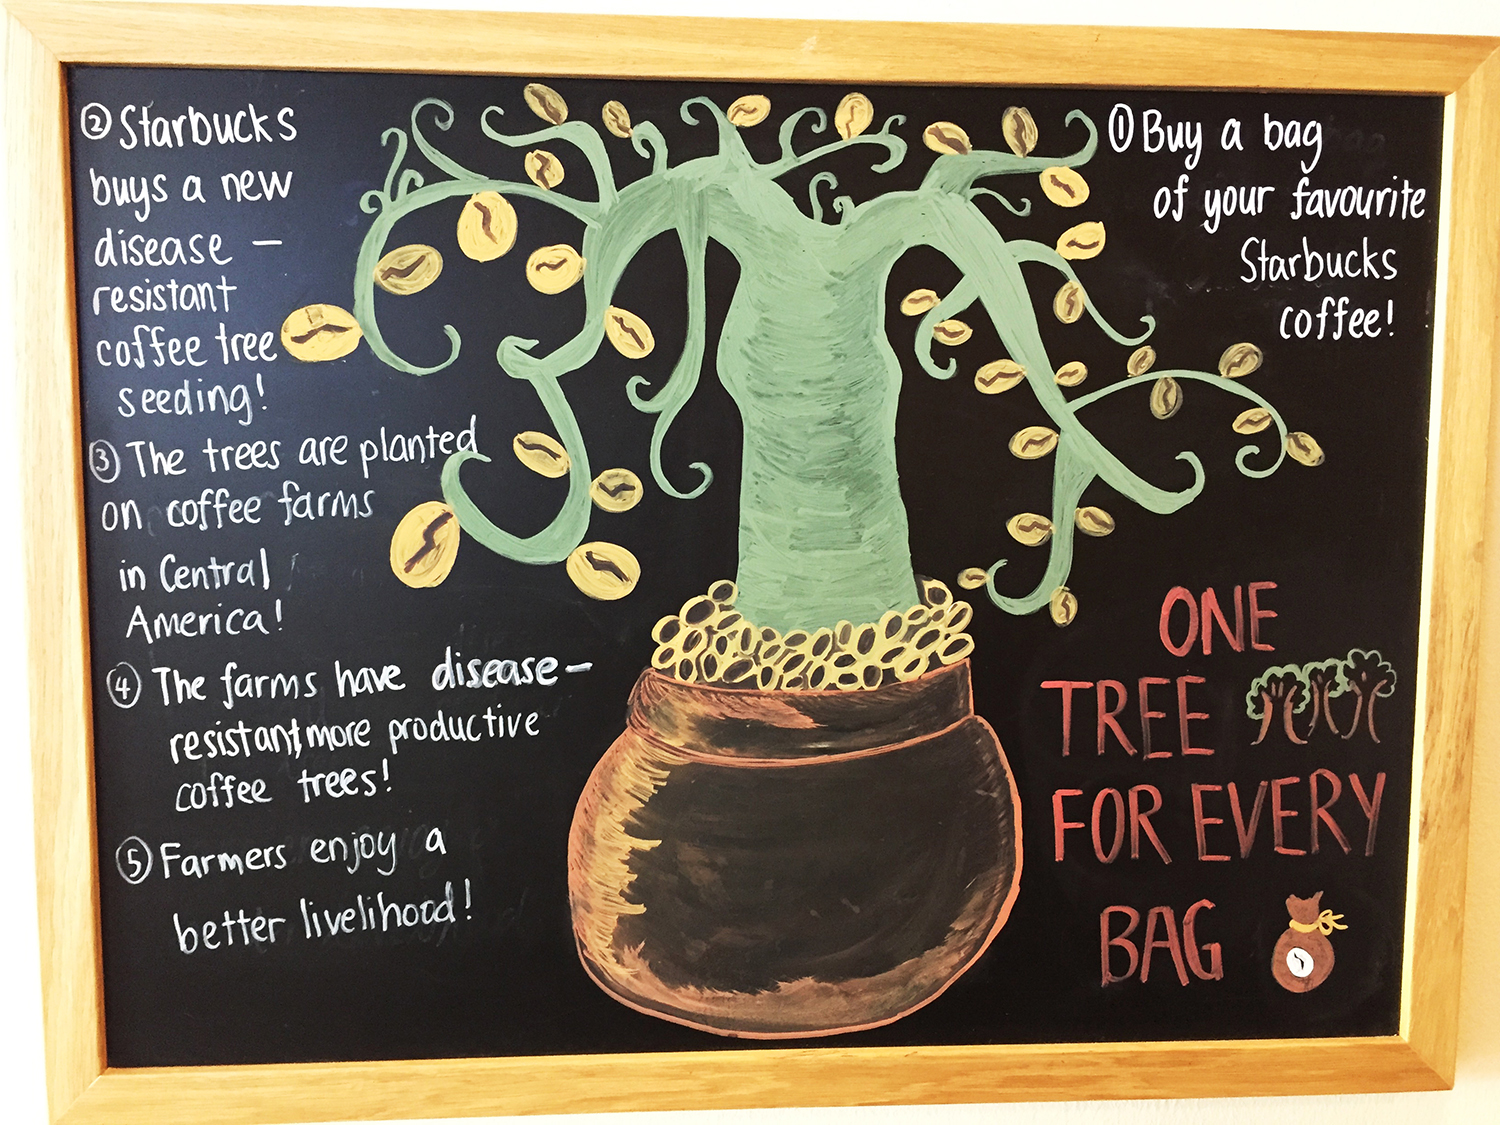 ① Buy a bag
of your favourite
Starbucks
coffee!
② Starbucks
buys a new
disease –
resistant
coffee tree
seeding!
③ The trees are planted
on coffee farms
in Central
America!
④ The farms have disease –
resistant, more productive
coffee trees!
⑤ Farmers enjoy a
better livelihood!
ONE
TREE
FOR EVERY
BAG